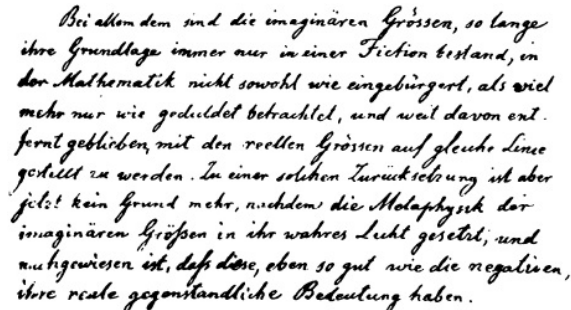 Bei allem dem sind die imaginären Grössen, so lange
ihre Grundlage immer nur in einer Fiction bestand, in
der Mathematik nicht sowohl wie eingebürgert, als viel
mehr nur wie geduldet betrachtet, und weit davon ent-
fernt geblieben, mit den reellen Grössen auf gleiche Linie
gestellt zu werden. Zu einer solchen Zurücksetzung ist aber
jetzt kein Grund mehr, nachdem die Metaphysik der
imaginären Größen in ihr wahres Licht gesetzt, und
nachgewiesen ist, daß diese, eben so gut wie die negativen,
ihre reale gegenständliche Bedeutung haben.